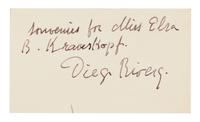 souvenir for Miss Elsa
B. Krauskopf.
Diego Rivera.